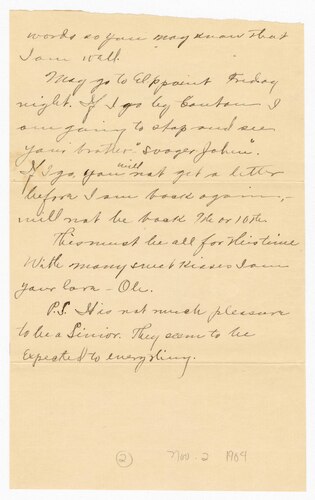 words so you may know that
I am well.
May go to El point Friday
night. If I go by Canton I
am going to stop and see
your brother "svoger John".
If I go, you will not get a letter
before I am back again,
will not be back 9th or 10th.
This must be all for this time
With many sweet kisses I am
your own – Ole.
P.S. It is not much pleasure
to be a Senior. They seem to be
expected to everything.
2 Nov. 2 1909